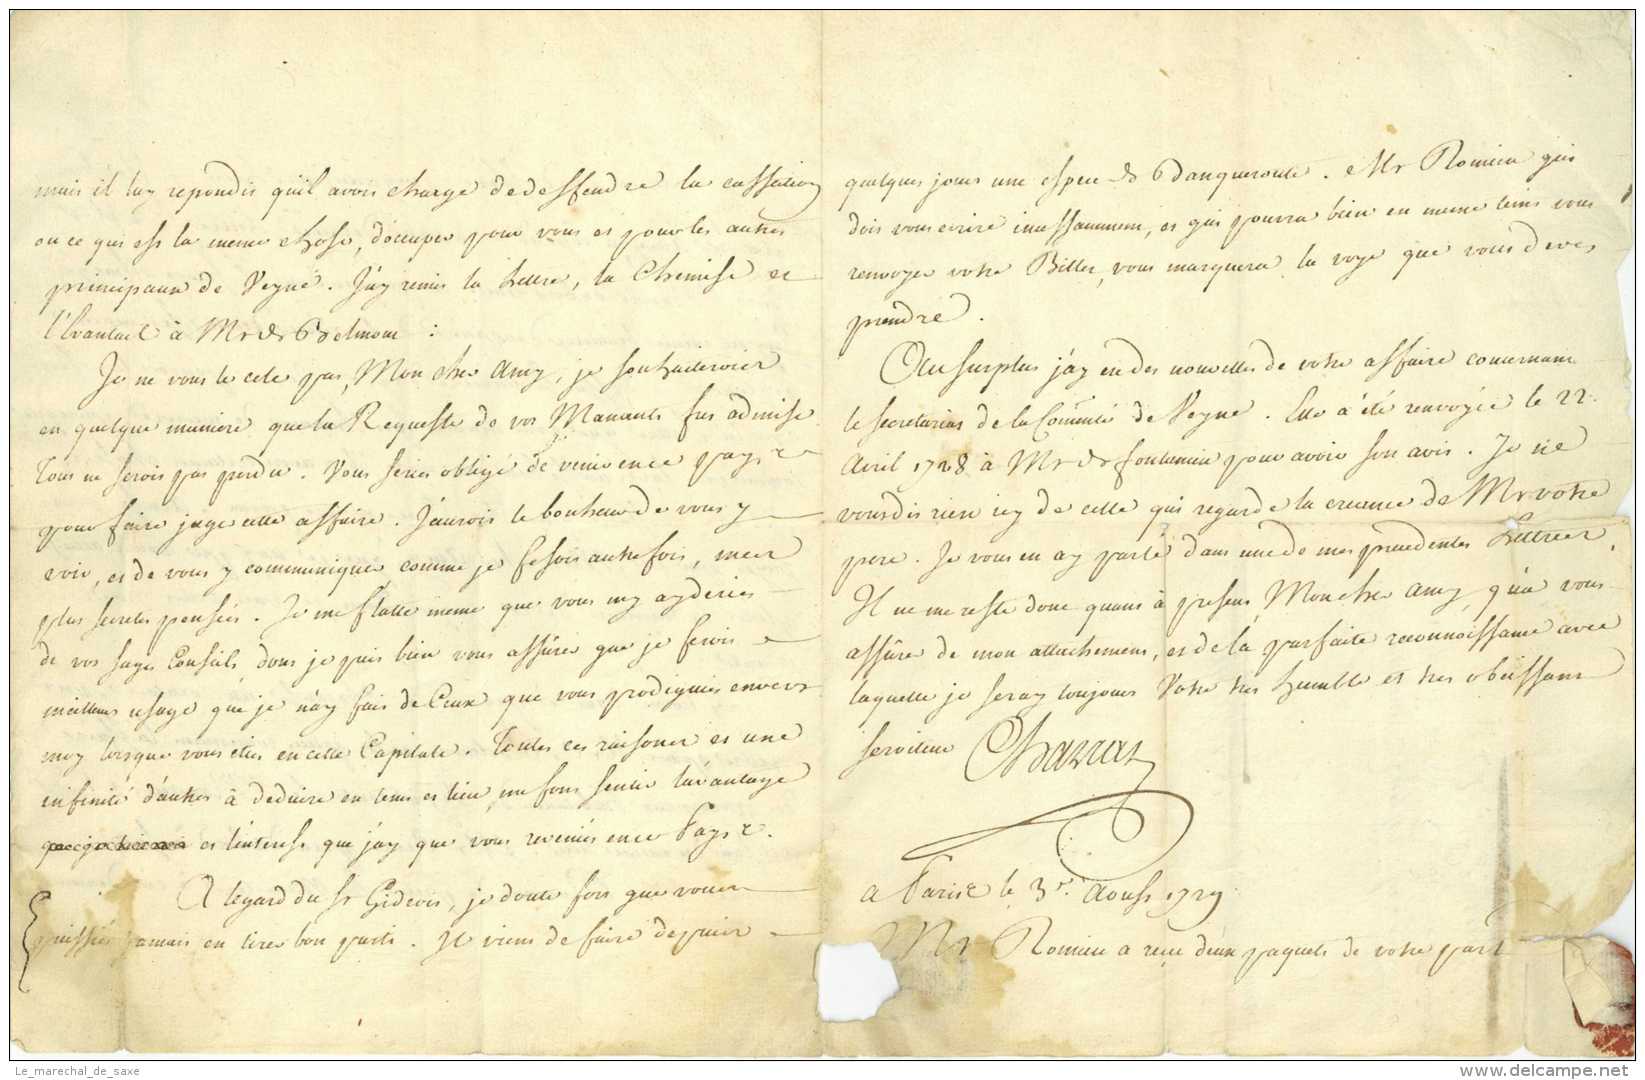 mais il luy repondit qu'il avoit charge de deffendre la cassation
ou ce qui est la meme chose, d'occuper pour vous et pour les autres
principaux de Veyne. J'ay remis la Lettre, la Chemise et
l'Evantail à Mr de Belmont :
Je ne vous le cele pas, Mon cher Amy, je souhaiterois
en quelque maniere que la Requeste de vos Manants fut admise
Tout ne seroit pas perdu. Vous seriez obligé de venir en ce pays
pour faire juger cette affaire. J'aurois le bonheur de vous y
voir, et de vous y communiquer comme je fesois autrefois, mes
plus secretes pensées. Je me flatte meme que vous m'y ayderiez
de vos sages Conseils, dont je puis bien vous assûrer que je ferois
meilleur usage que je n'ay fait de Ceux que vous prodiguiés envers
moy lorsque vous etiez en cette Capitale. Toutes ces raisons et une
infinité d'autres à deduire en tems et lieu, me font sentir l'avantage
et l'interest que j'ay que vous reveniés en ce Pays.
A l'egard du Sr Gidevis, je doute fort que vous en
puissiés jamais en tirer bon parti. Il vient de faire depuis
quelques jours une espece de Banqueroute. Mr Romieu qui
doit vous ecrire incessamment, et qui pourra bien en meme tems vous
renvoyer votre Billet, vous marquera la voye que vous devez
prendre.
Au surplus j'ay eu des nouvelles de votre affaire concernant
le secretariat de la Comm̃té de Veyne. Elle a été renvoyée le 22
Avril 1728 à Mr de fontanieu pour avoir son avis. Je ne
vous dis rien icy de celle qui regarde la creance de Mr votre
pere. Je vous en ay parlé dans une de mes precedentes Lettres,
Il ne me reste donc quant à present, Mon cher Amy, qu'à vous
assûrer de mon attachement, et de la parfaite reconnoissance avec
laquelle je seray toujours Votre tres humble et tres obeissant
serviteur Charras
a Paris le 3e. Aoust 1729
Mr Romieu a reçu deux paquets de votre part
Le_marechal_de_saxe
www.delcampe.net